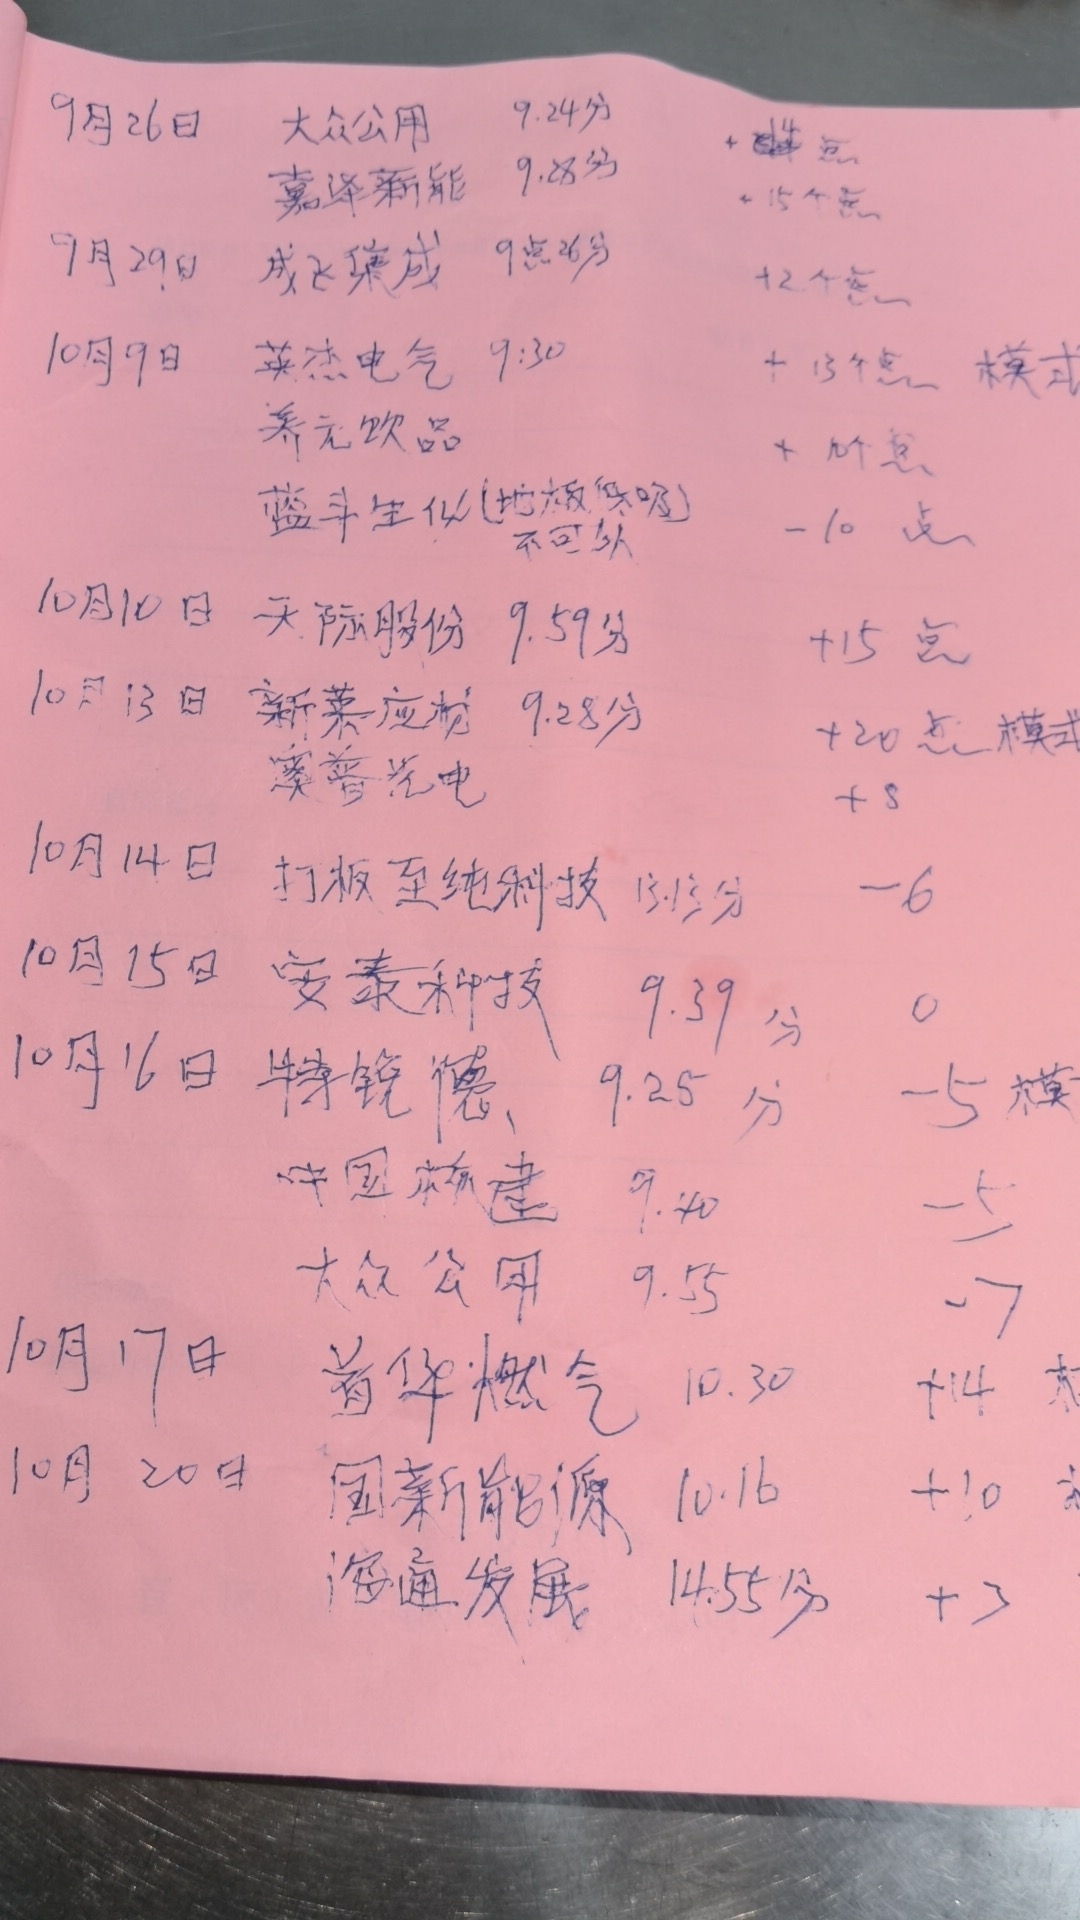 9月26日 大众公用 9.24分 + 点
嘉泽新能 9.28分 +15个点
9月29日 成飞集成 9点26分 +2个点
10月9日 英杰电气 9:30 +13个点 模式
养元饮品 + 个点
蓝斗生 (地板 不可以 -10 点
10月10日 天际股份 9.59分 +15 点
10月13日 新莱应材 9.28分 +20点 模式
奥普光电 +8
10月14日 打板至纯科技 13.13分 -6
10月15日 安泰科技 9.39分 0
10月16日 特锐德、 9.25分 -5 模
中国核建 9.40 -5
大众公用 9.55 -7
10月17日 首华燃气 10.30 +14
10月20日 国新能源 10.16 +10
海通发展 14.55分 +3